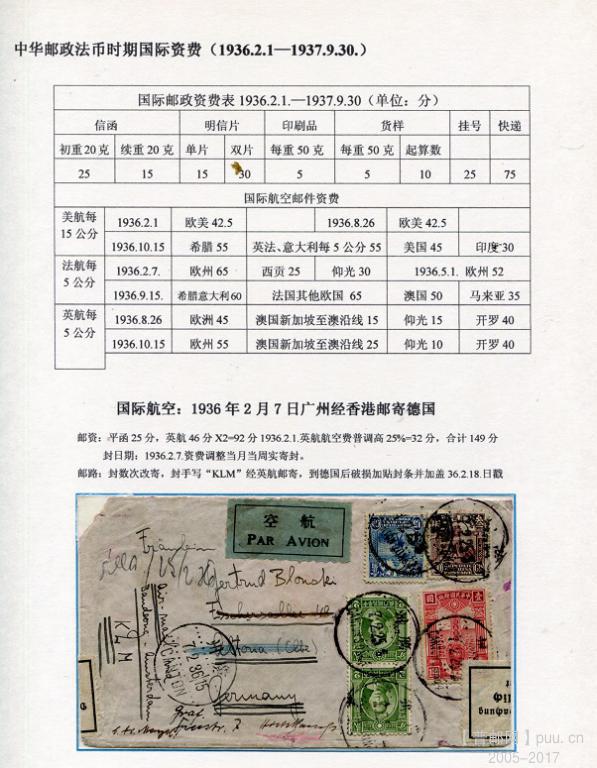 中华邮政法币时期国际资费（1936.2.1—1937.9.30.）
国际邮政资费表 1936.2.1.—1937.9.30（单位：分）
信函 明信片 印刷品 货样 挂号 快递
初重20克 续重20克 单片 双片 每重50克 每重50克 起算数
25 15 15 30 5 5 10 25 75
国际航空邮件资费
美航每15公分 1936.2.1 欧美 42.5 1936.8.26 欧美 42.5
1936.10.15 希腊 55 英法、意大利每5公分55 美国 45 印度 30
法航每5公分 1936.2.7. 欧州 65 西贡 25 仰光 30 1936.5.1. 欧州 52
1936.9.15. 希腊意大利60 法国其他欧国 65 澳国 50 马来亚 35
英航每5公分 1936.8.26 欧洲 45 澳国新加坡至澳沿线 15 仰光 15 开罗 40
1936.10.15 欧州 55 澳国新加坡至澳沿线 25 仰光 10 开罗 40
国际航空：1936年2月7日广州经香港邮寄德国
邮资：平函25分，英航46分X2=92分 1936.2.1.英航航空费普调高25%=32分，合计149分
封日期：1936.2.7.资费调整当月当周实寄封。
邮路：封数次改寄，封手写“KLM”经英航邮寄，到德国后破损加贴封条并加盖36.2.18.日戳
空航
PAR AVION
Fräulein
Gertrud Blonski
Germany
Air-mail
Bandoeng-Amsterdam
KLM
CANTON
7.2.36.15
puu.cn
2005-2017